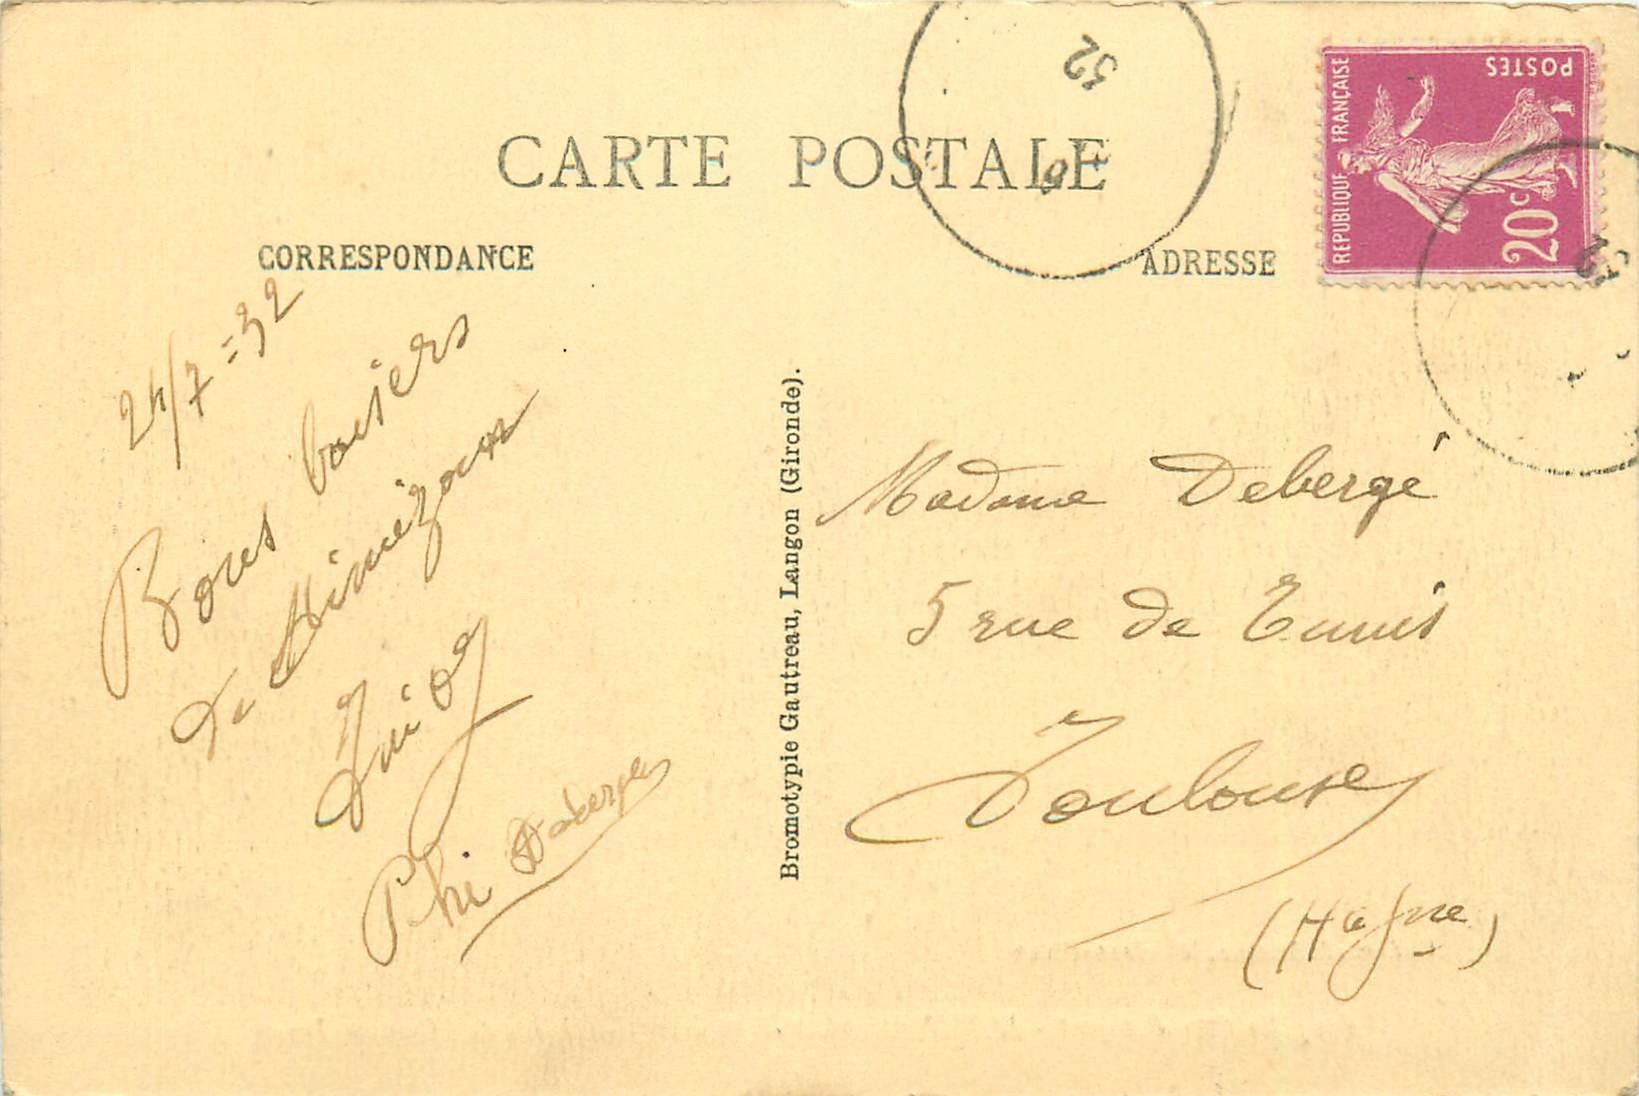 CARTE POSTALE
CORRESPONDANCE
ADRESSE
REPUBLIQUE FRANÇAISE
POSTES
20c
32
24/7=32
Bons baisers
de Mimizan
Debergé
Bromotypie Gautreau, Langon (Gironde).
Madame Debergé
5 rue de Tunis
Toulouse
(Hte Gne)